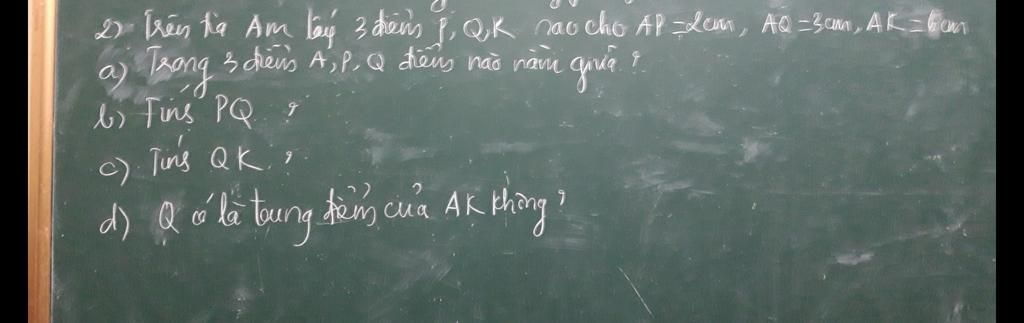 2) Trên tia Am lấy 3 điểm P, Q, K sao cho AP = 2cm, AQ = 3cm, AK = 6cm
a) Trong 3 điểm A, P, Q điểm nào nằm giữa ?
b) Tính PQ ?
c) Tính QK ?
d) Q có là trung điểm của AK không ?